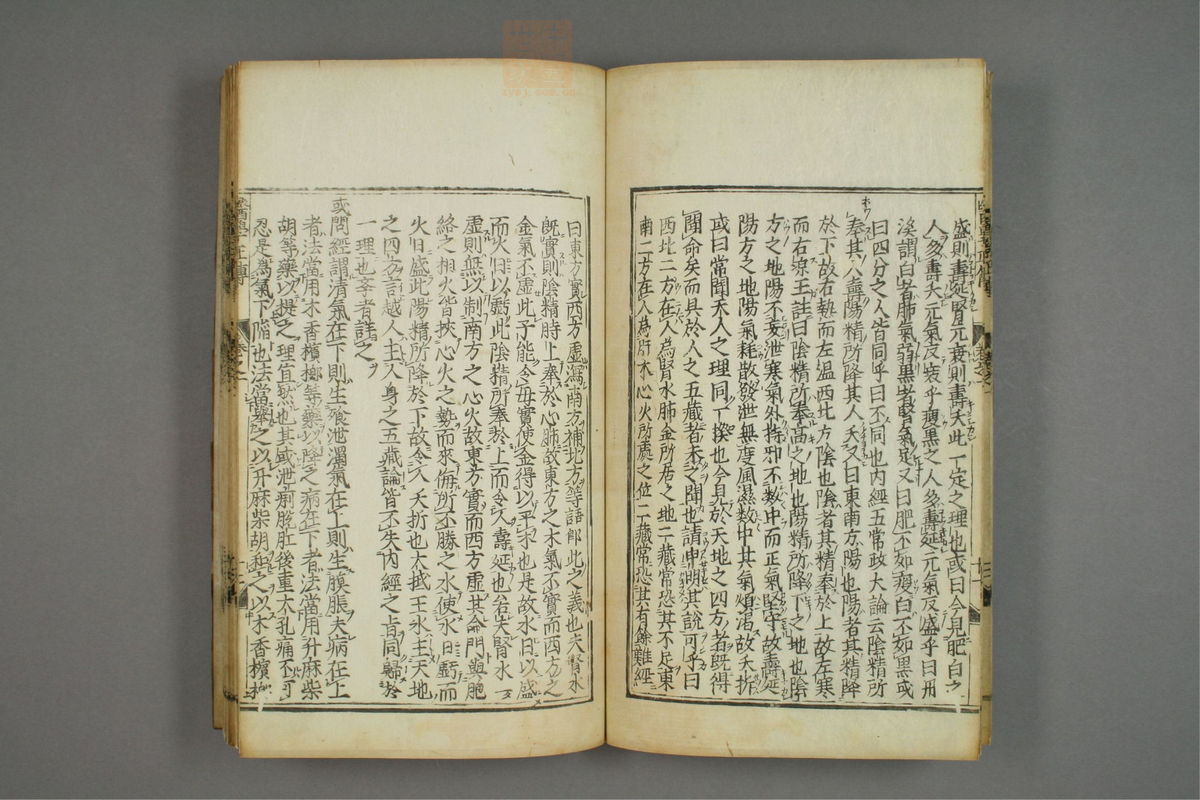 盛則壽延腎元衰則壽夭此一定之理也或曰今見肥白之
人多壽夭元氣反衰乎瘦黑之人多壽延元氣反盛乎曰丹
溪謂白者肺氣弱黑者腎氣足又曰肥不如瘦白不如黑或
曰四方之人皆同乎曰不同也内經五常政大論云陰精所
奉其人壽陽精所降其人夭又曰東南方陽也陽者其精降
於下故右熱而左温西北方陰也陰者其精奉於上故左寒
而右涼王註曰陰精所奉高之地也陽精所降下之地也陰
方之地陽不妄泄寒氣外持邪不數中而正氣堅守故壽延
陽方之地陽氣耗散發泄無度風濕數中其氣煩渴故夭折
或曰常聞天人之理同一揆也今見於天地之四方者既得
聞命矣而具於人之五藏者未之聞也請申明其説可乎曰
西北二方在人為腎水肺金所居之地二藏常恐其不足東
南二方在人為肝木心火所處之位二藏常恐其有餘難經
曰東方實西方虚瀉南方補北方等語即此之義也夫腎水
既實則陰精時上奉於心肺故東方之木氣不實而西方之
金氣不虚此子能令母實使金得以平木也是故水日以盛
而火日以虧此陰精所奉於上而令人壽延也若夫腎水一
虚則無以制南方之心火故東方實而西方虚其命門與胞
絡之相火皆挾心火之勢而來侮所不勝之水使水日虧而
火日盛此陽精所降於下故令人夭折也大抵王氷主天地
之四方言越人主人身之五藏論皆不失内經之旨同歸於
一理也幸者詳之
或問經謂清氣在下則生飱泄濁氣在上則生䐜脹夫病在上
者法當用木香檳榔等藥以降之病在下者法當用升麻柴
胡等藥以提之理宜然也其或泄痢脫肛後重大孔痛不可
忍是為氣下陷也法當舉之以升麻柴胡和之以木香檳榔
醫學正傳
卷之一